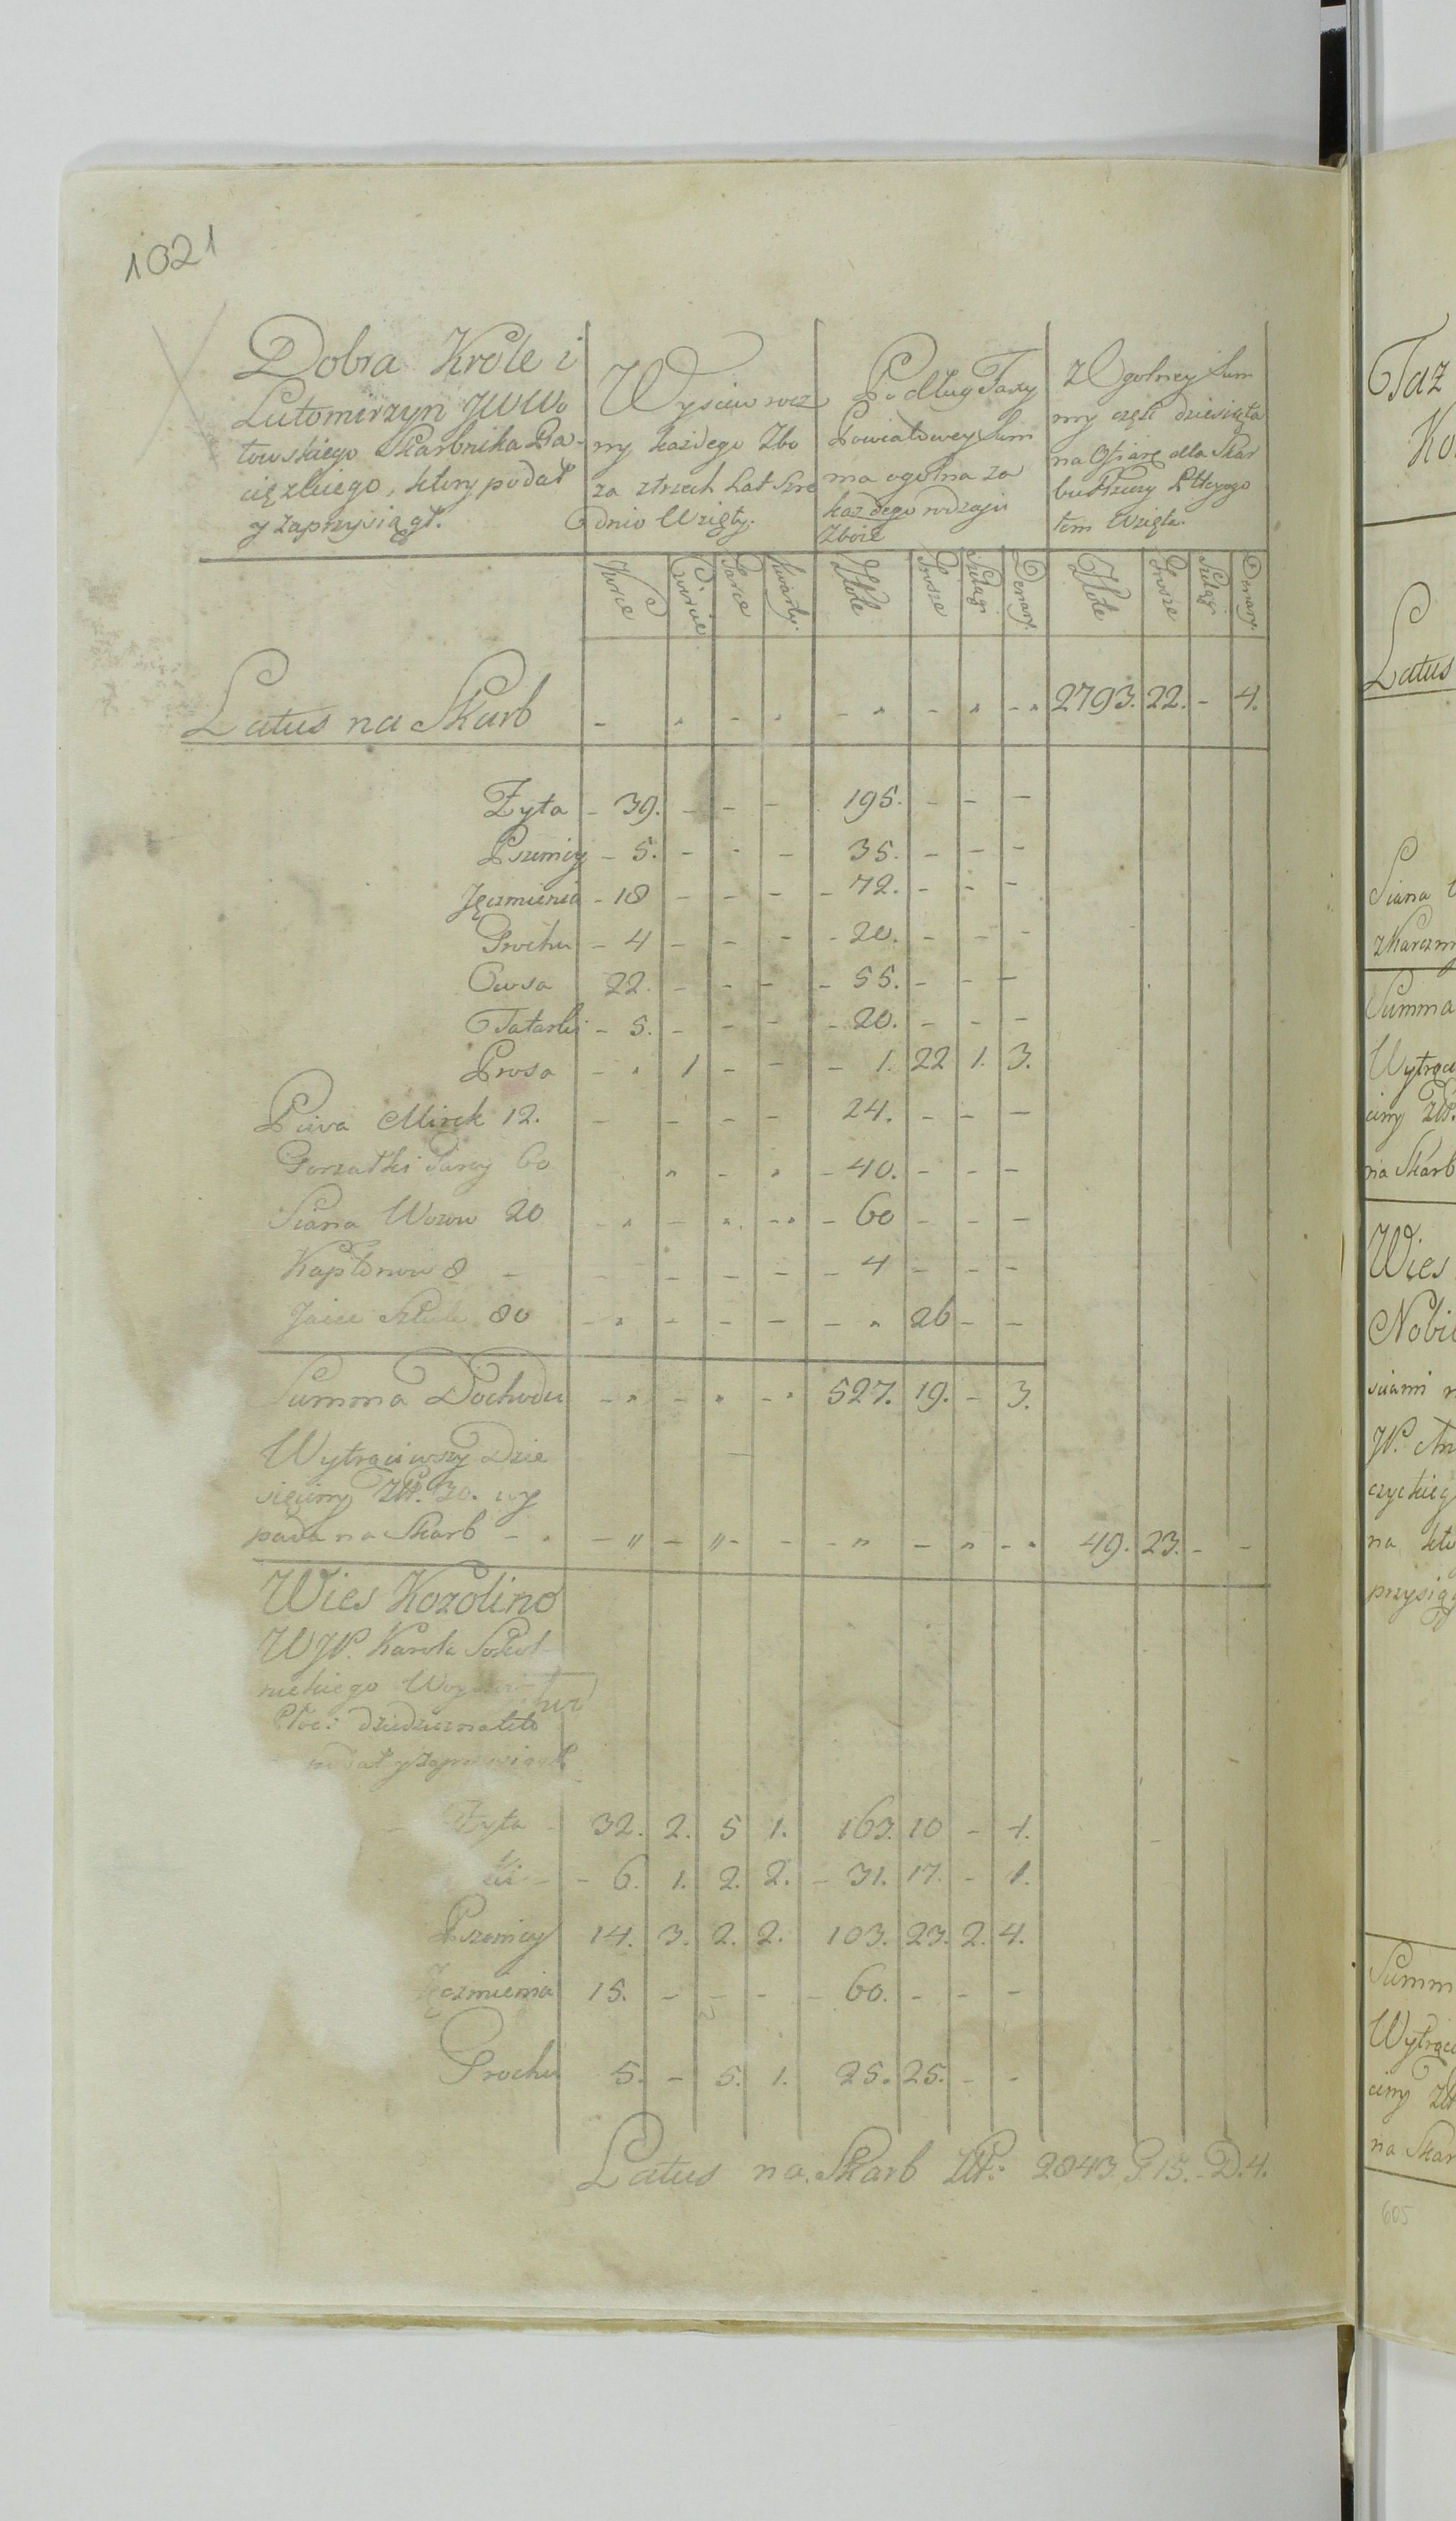 1021
Dobra Krole i
Lutomirzyn JWWo
towskiego Skarbnika Ra-
ciązkiego, ktory podał
y zaprzysiągł.
Wysiew rocz
ny każdego Zbo
za ztrzech Lat Sre
dnio Wzięty.
Podług Taxy
Powiatowey Sum
ma ogolna za
każdego rodzaju
Zboże
Z Ogolney Sum
my częśc dziesiąta
na Ofiarę dla Skar
bu Rzeczy Pltey
tem Wzięta.
Korce Cwierci Garce Kwarty. Złote Grosze Szelągi Denary. Złote Grosze Szelągi Denary.
Latus na Skarb - - - - - - - - 2793. 22. - 4.
Zyta - 39. - - - 195. - - -
Pszenicy - 5. - - - 35. - - -
Jęczmienia - 18 - - - - 72. - - -
Grochu - 4 - - - - 20. - - -
Owsa 22. - - - - 55. - - -
Tatarki - 5. - - - - 20. - - -
Prosa - 1 - - - 1. 22 1. 3.
Piwa Mirek 12. - - - - 24. - - -
Gorzałki Garcy 60 - 40. - - -
Siana Wozow 20 - - - - 60 - - -
Kapłonow 8 - - - - - 4 - - -
Jaiec Sztuk 80 - - - - - 26 - -
Summa Dochodu - - - - 527. 19. - 3.
Wytrąciwszy Dzie
sięciny Złł. 30. wy
pada na Skarb - - - - - - - - - 49. 23. - -
Wies Kozolino
WJP. Karola Sokol
nickiego
Płoc: dziedziczna
podał y zaprzysiągł
Zyta - 32. 2. 5 1. 163. 10 - 1.
- 6. 1. 2. 2. - 31. 17. - 1.
Pszenicy 14. 3. 2. 2. 103. 23. 2. 4.
Jęczmienia 15. - - - - 60. - - -
Grochu 5. - 5. 1. 25. 25. - -
Latus na Skarb Złł: 2843. G 15. - D. 4.
Taz
Ko
Latus
Siana
z Karczm
Summa
Wytrąci
ciny Złł.
na Skarb
Wies
Nobi
sciami
JP. An
czyckieg
na kto
przysięg
Summ
Wytrąci
ciny Złł
na Skar
605